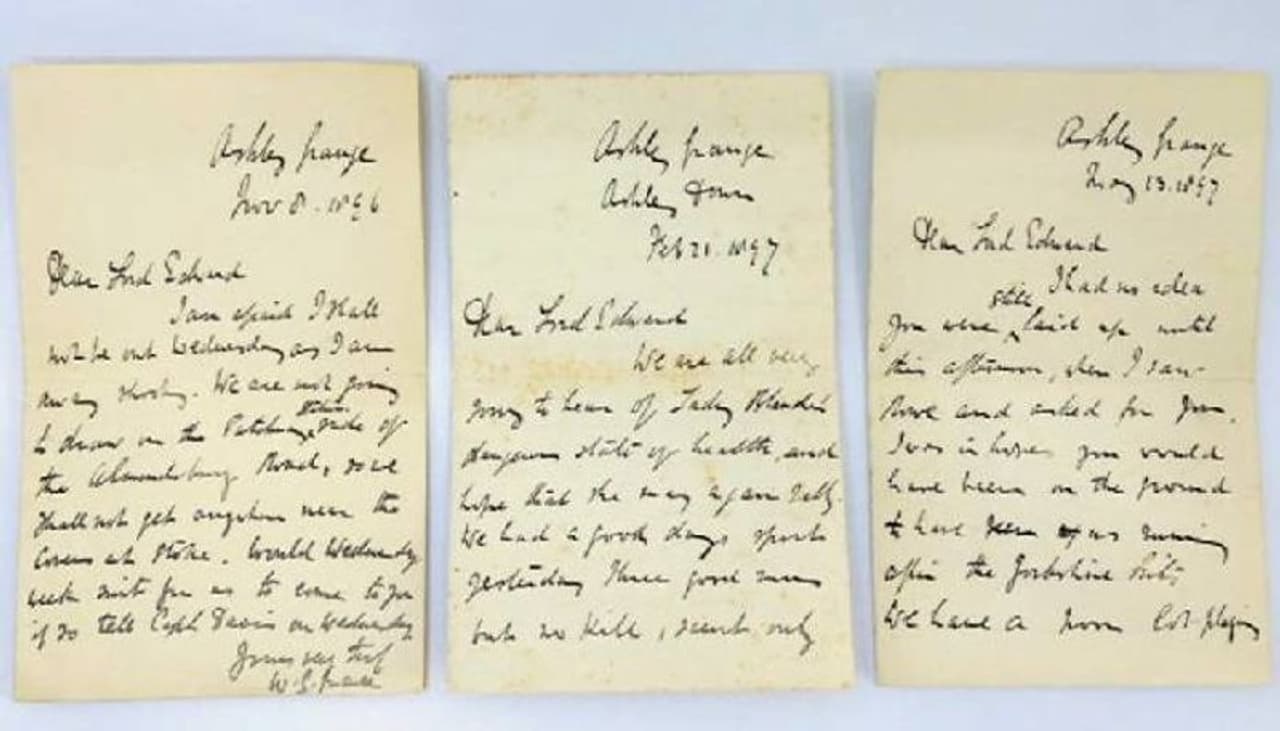 Ashley Grange
Nov 8. 1896
Dear Lord Edward
I am afraid I shall
not be out Wednesday as I am
away shooting. We are not going
to draw on the Patchway Station side of
the Almondsbury Road, so we
shall not get anywhere near the
Covers at Stoke. Would Wednesday
week suit for us to come to you
if so tell Capt Davis on Wednesday
Yours very truly
W. G. Grace
Ashley Grange
Ashley Down
Feb 21. 1897
Dear Lord Edward
We are all very
sorry to hear of Lady
dangerous state of health, and
hope that she may again rally.
We had a good days sport
yesterday three good runs
but no kill, scent only
Ashley Grange
May 13. 1897
Dear Lord Edward
I had no idea
you were still laid up until
this afternoon, when I saw
Rowe and asked for you.
I was in hopes you would
have been on the ground
to have seen us running
after the Yorkshire hits
We have a poor lot playing